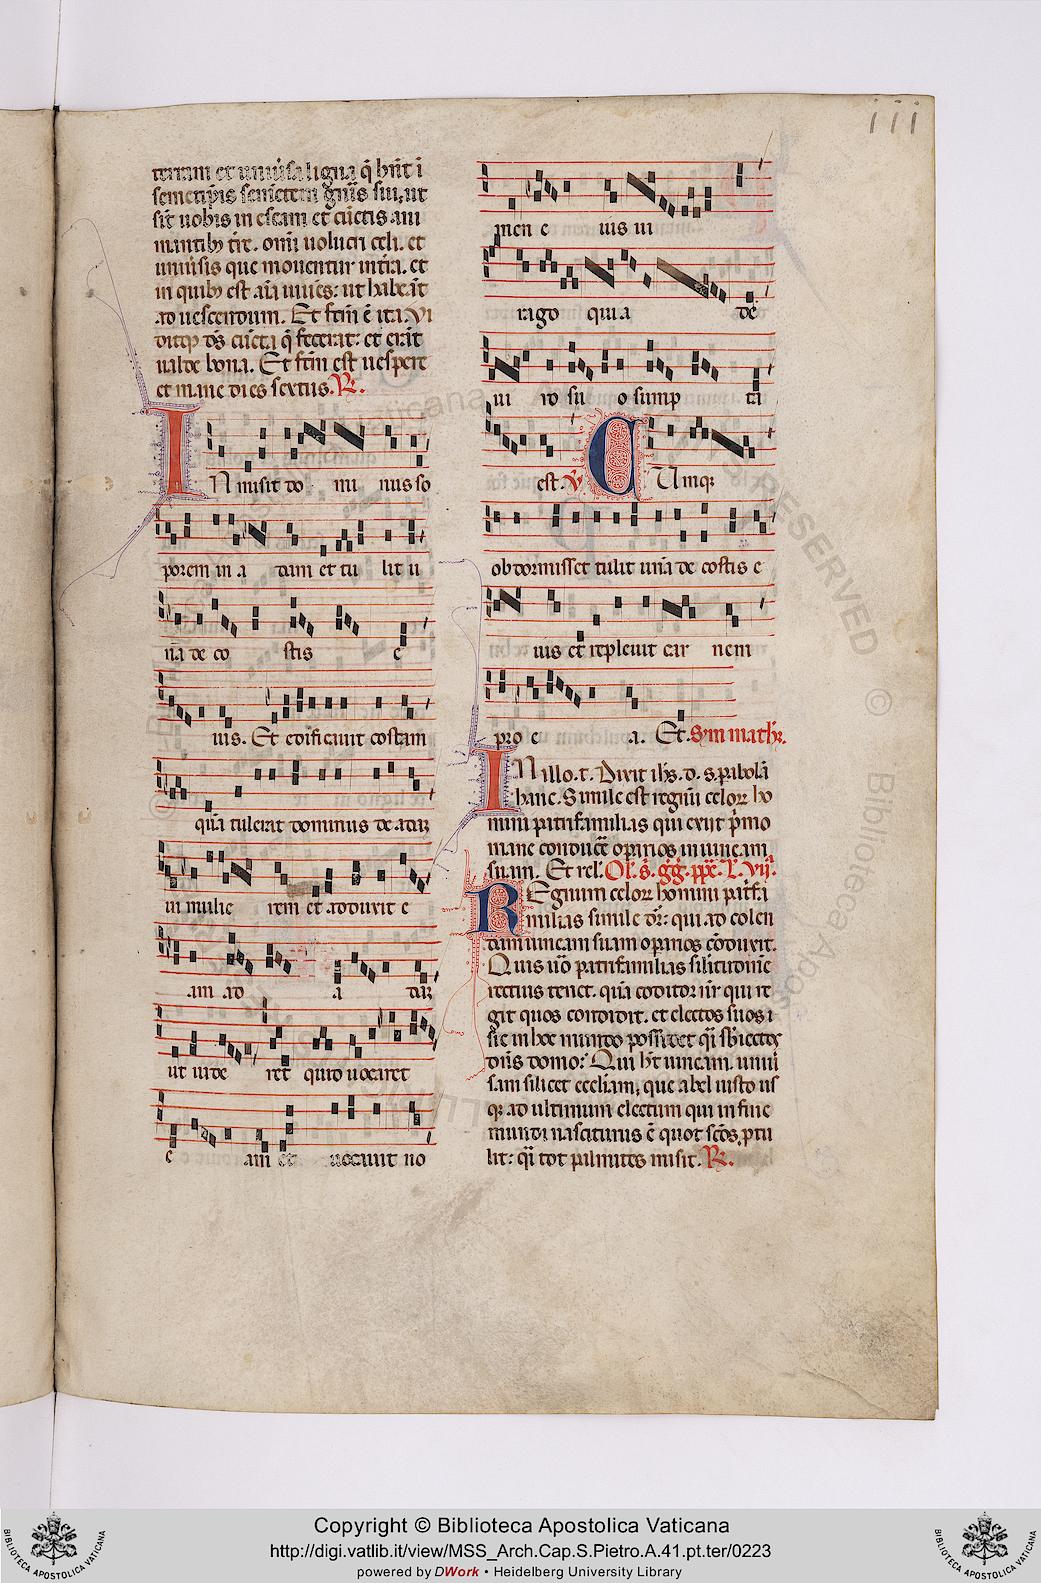 iii
terram et univ̾sa ligna q̃ hñt ĩ
semetip̃is sem̃etem gñis sui, ut
sĩt uobis in escam et cũctis ani
mantib; tr̃e. omĩ uolucri celi. et
uniu̾sis que mouentur in tr̃a. et
in quib; est aĩa uiuẽs: ut habeãt
ad uescendum. Et fc̃m ẽ ita. Vi
ditq; dс̃ cũcta q̃ fecerat: et erãt
ualde bona. Et fc̃m est uespere
et mane dies sextus. R̃.
IN misit do mi nus so
porem in a dam et tu lit u
nã de co stis e
ius. Et edificauit costam
quã tulerat dominus de adaꝫ
in mulie rem et adduxit e
am ad a daꝫ
ut uide ret quid uocaret
e am et uocauit no
men e ius ui
rago quia de
ui ro su o sump ta
est. V̾ CUmqꝫ
obdormisset tulit unã de costis e
ius et repleuit car nem
pro e a. Et. Sym math̃.
IN illo. t. Dixit ih̃s. d. s. ꝑabolã
hanc. Simile est regnũ celoꝝ ho
mini patrifamilias qui exijt p̾mo
mane conduce̾ oꝑarios in uineam
suam. Et rel̃. Om̃. s̃. g̃g̃. pp̃e. L̃. vij̃.
REgnum celoꝝ homini patrifa
milias simile dr̃: qui ad colen
dam uineam suam oꝑarios cõduxit.
Quis u̾o patrifamilias sil̃itudinẽ
rectius tenet. quã cõditor nr̃ qui re
git quos condidit. et electos suos ĩ
sic in hoc mundo possidet q̃i sb̾iectos
dñs domo: Qui h̾t uineam. uniu̾
sam silicet eccl̃iam, que abel iusto us
qꝫ ad ultimum electum qui in fine
mundi nasciturus ẽ quot sc̃os ptu
lit: q̃i tot palmites misit. R̃.
Copyright © Biblioteca Apostolica Vaticana
http://digi.vatlib.it/view/MSS_Arch.Cap.S.Pietro.A.41.pt.ter/0223
powered by DWork • Heidelberg University Library